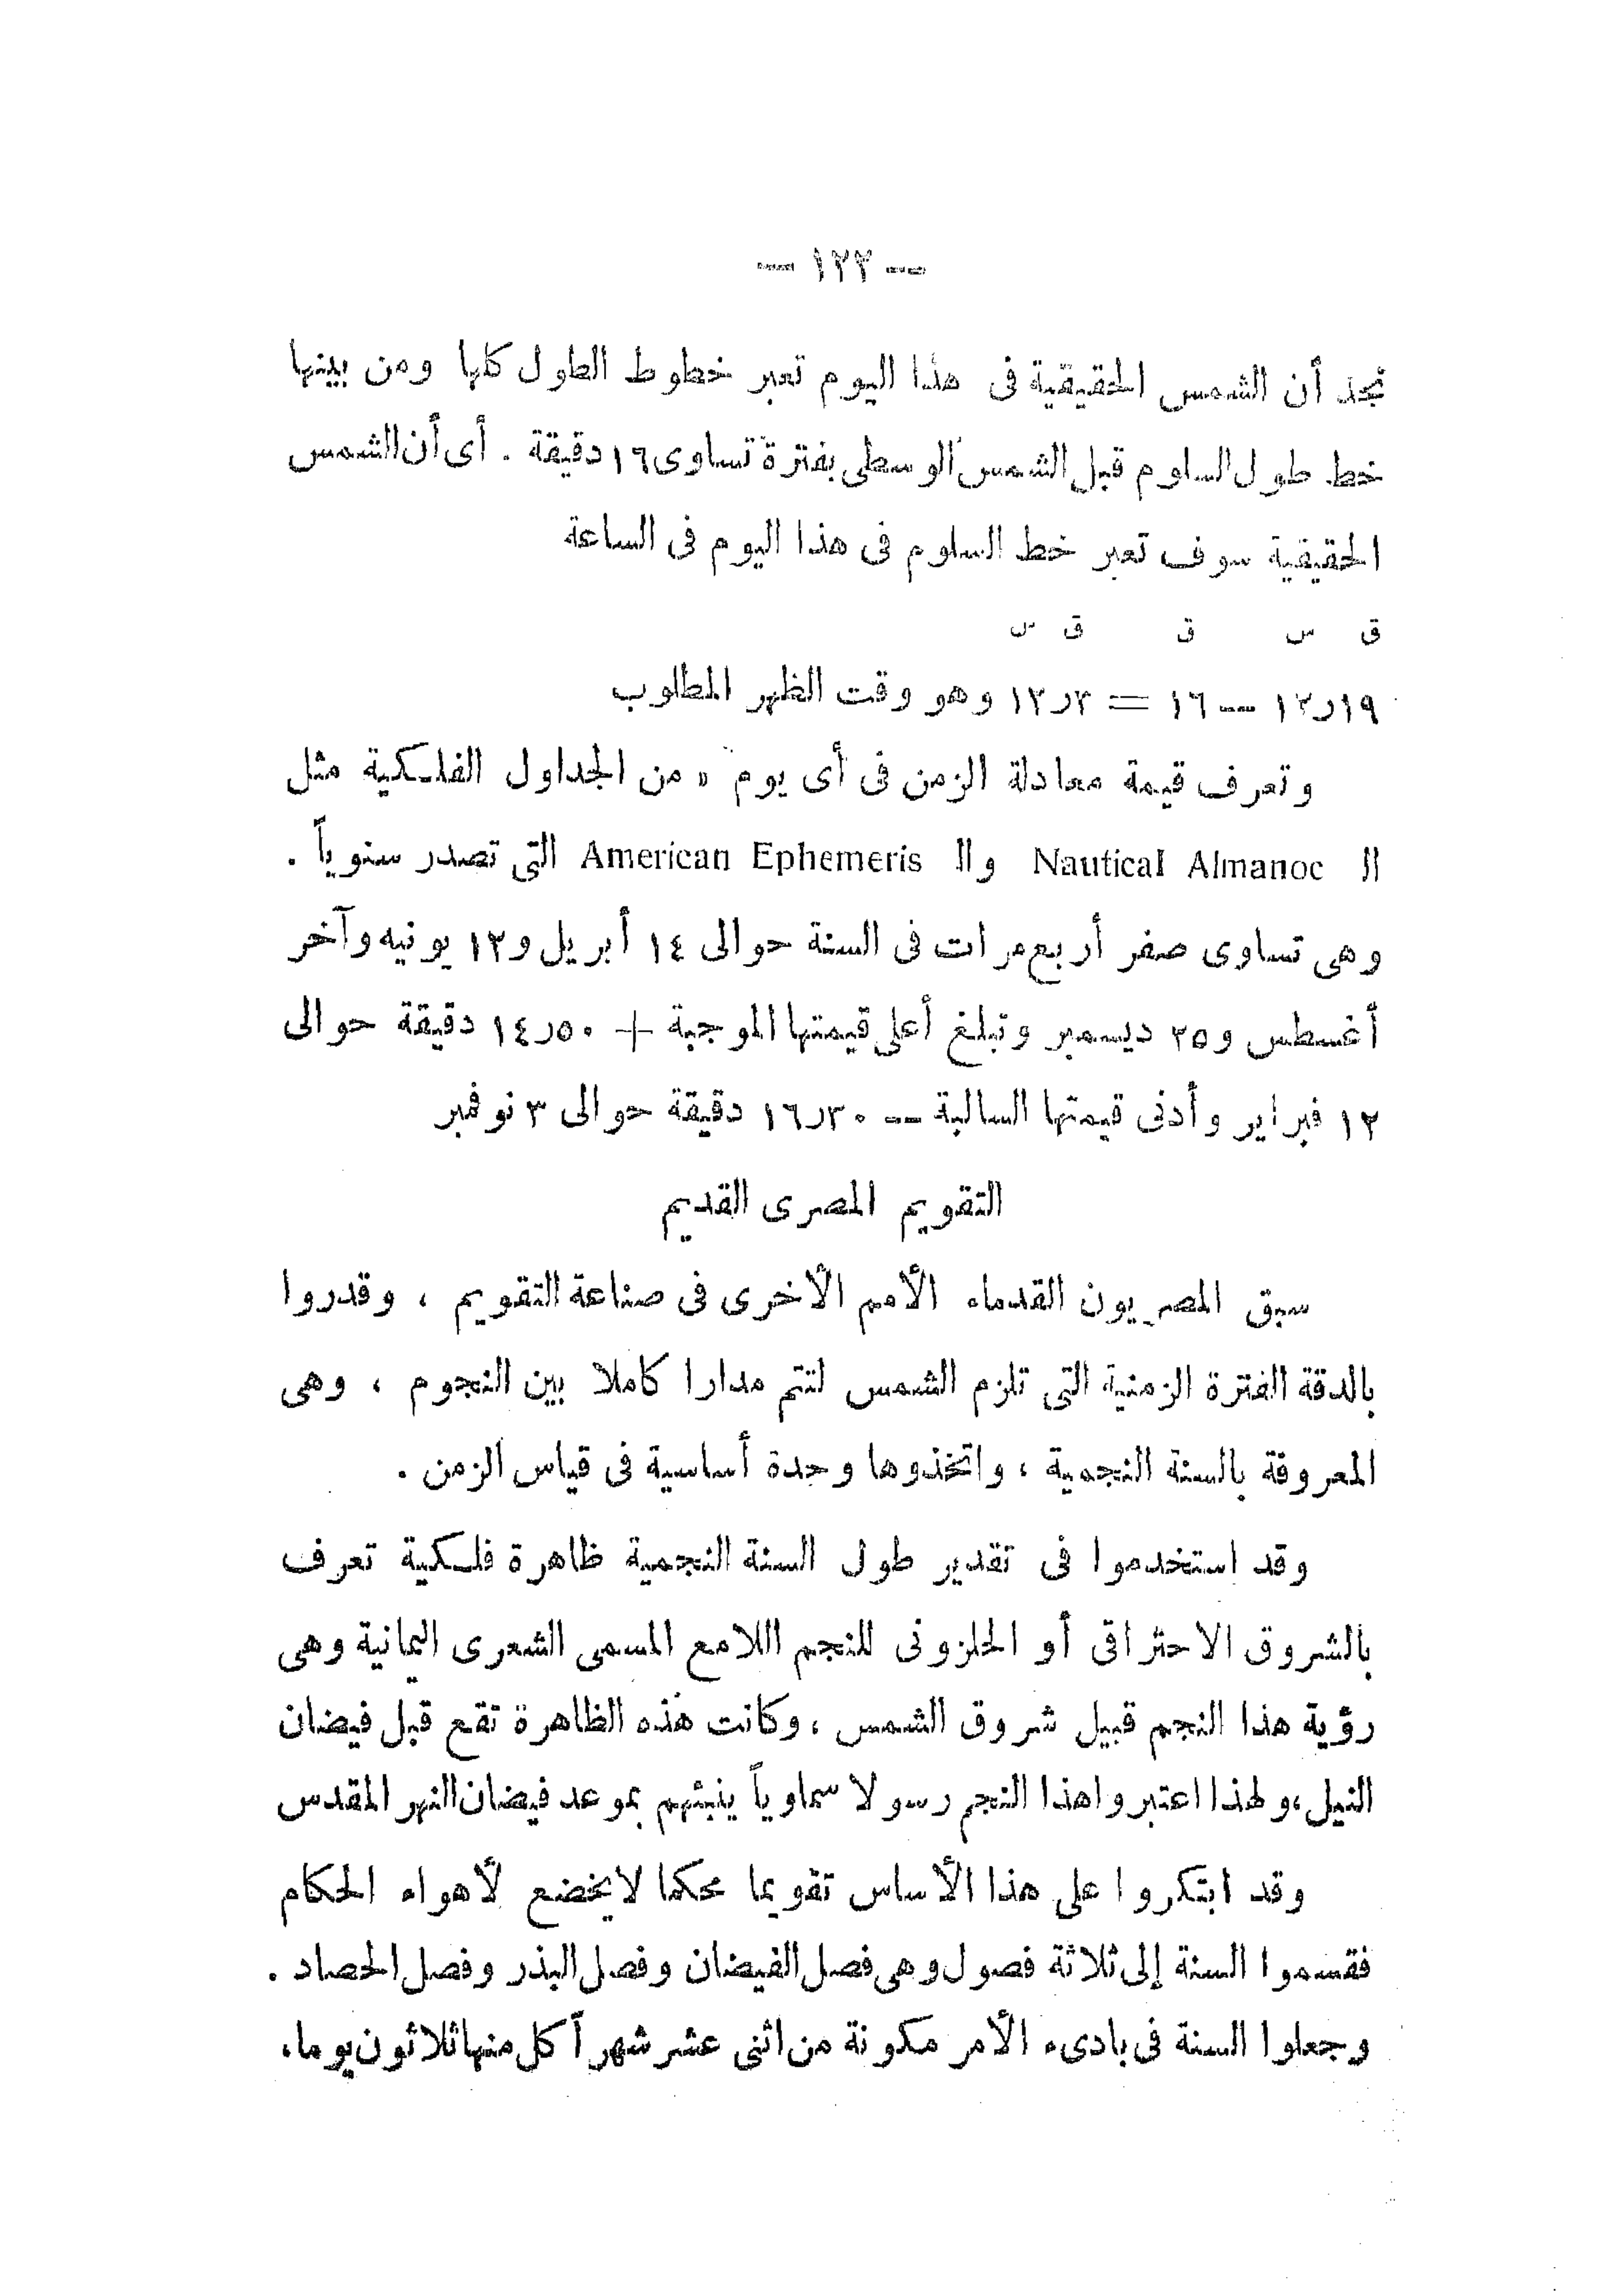 — ١٢٢ —
نجد أن الشمس الحقيقية فى هذا اليوم تعبر خطوط الطول كلها ومن بينها
خط طول السلوم قبل الشمس الوسطى بفترة تساوى ١٦ دقيقة . أى أن الشمس
الحقيقية سوف تعبر خط السلوم فى هذا اليوم فى الساعة
ق س ق ق س
١٩ر١٢ — ١٦ = ٣ر١٢ وهو وقت الظهر المطلوب
وتعرف قيمة معادلة الزمن فى أى يوم من الجداول الفلكية مثل
الـ Nautical Almanoc والـ American Ephemeris التى تصدر سنوياً .
وهى تساوى صفر أربع مرات فى السنة حوالى ١٤ أبريل و١٣ يونيه وآخر
أغسطس و٢٥ ديسمبر وتبلغ أعلى قيمتها الموجبة + ٥٠ر١٤ دقيقة حوالى
١٢ فبراير وأدنى قيمتها السالبة — ٣٠ر١٦ دقيقة حوالى ٣ نوفمبر
التقويم المصرى القديم
سبق المصريون القدماء الأمم الأخرى فى صناعة التقويم ، وقدروا
بالدقة الفترة الزمنية التى تلزم الشمس لتتم مدارا كاملا بين النجوم ، وهى
المعروفة بالسنة النجمية ، واتخذوها وحدة أساسية فى قياس الزمن .
وقد استخدموا فى تقدير طول السنة النجمية ظاهرة فلكية تعرف
بالشروق الاحتراقى أو الحلزونى للنجم اللامع المسمى الشعرى اليمانية وهى
رؤية هذا النجم قبيل شروق الشمس ، وكانت هذه الظاهرة تقع قبل فيضان
النيل ، ولهذا اعتبروا هذا النجم رسولا سماوياً ينبئهم بموعد فيضان النهر المقدس
وقد ابتكروا على هذا الأساس تقويما محكما لا يخضع لأهواء الحكام
فقسموا السنة إلى ثلاثة فصول وهى فصل الفيضان وفصل البذر وفصل الحصاد .
وجعلوا السنة فى بادىء الأمر مكونة من اثنى عشر شهراً كل منها ثلاثون يوما ،